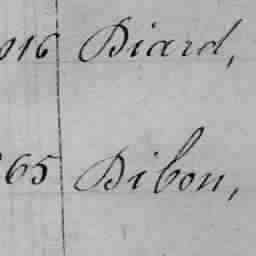 016 Biard,
65 Bibon,